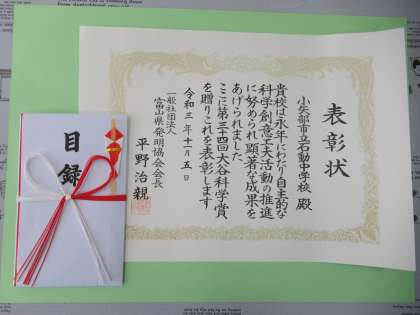 表彰状
小矢部市立石動中学校 殿
貴校は永年にわたり自主的な
科学創意工夫活動の推進
に努められ顕著な成果を
あげられました
ここに第三十四回大谷科学賞
を贈りこれを表彰します
令和三年十一月五日
一般社団法人
富山県発明協会会長
平野治親
目録